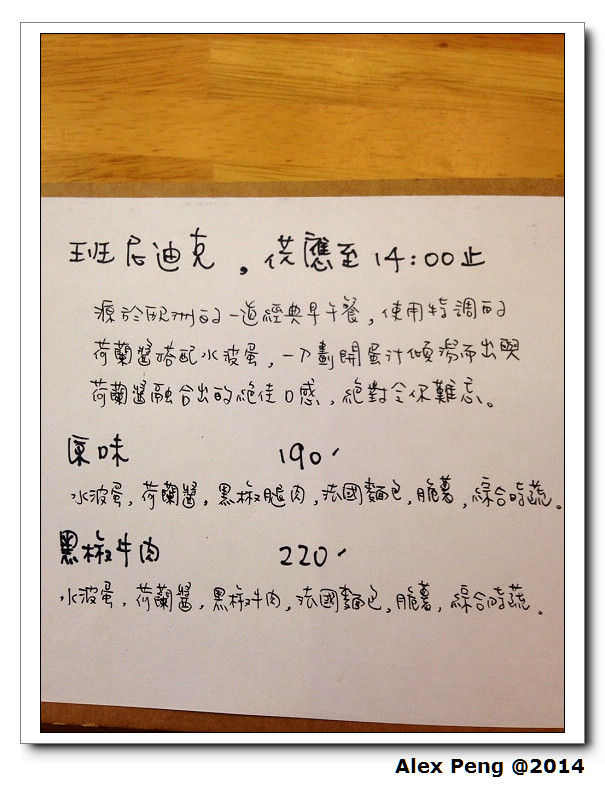 班尼迪克，供應至14:00止
源於歐洲的一道經典早午餐，使用特調的
荷蘭醬搭配水波蛋，一刀劃開蛋汁傾瀉而出與
荷蘭醬融合出的絶佳口感，絕對令你難忘。
原味 190
水波蛋，荷蘭醬，黑椒腿肉，法國麵包，脆薯，綜合時蔬。
黑椒牛肉 220
水波蛋，荷蘭醬，黑椒牛肉，法國麵包，脆薯，綜合時蔬。
Alex Peng @2014